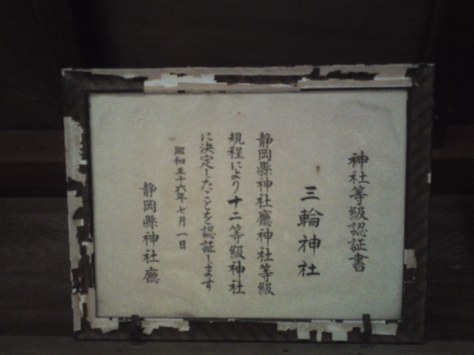 神社等級認証書
三輪神社
静岡縣神社廳神社等級
規程により十二等級神社
に決定したことを認証します
昭和五十六年七月一日
静岡縣神社廳